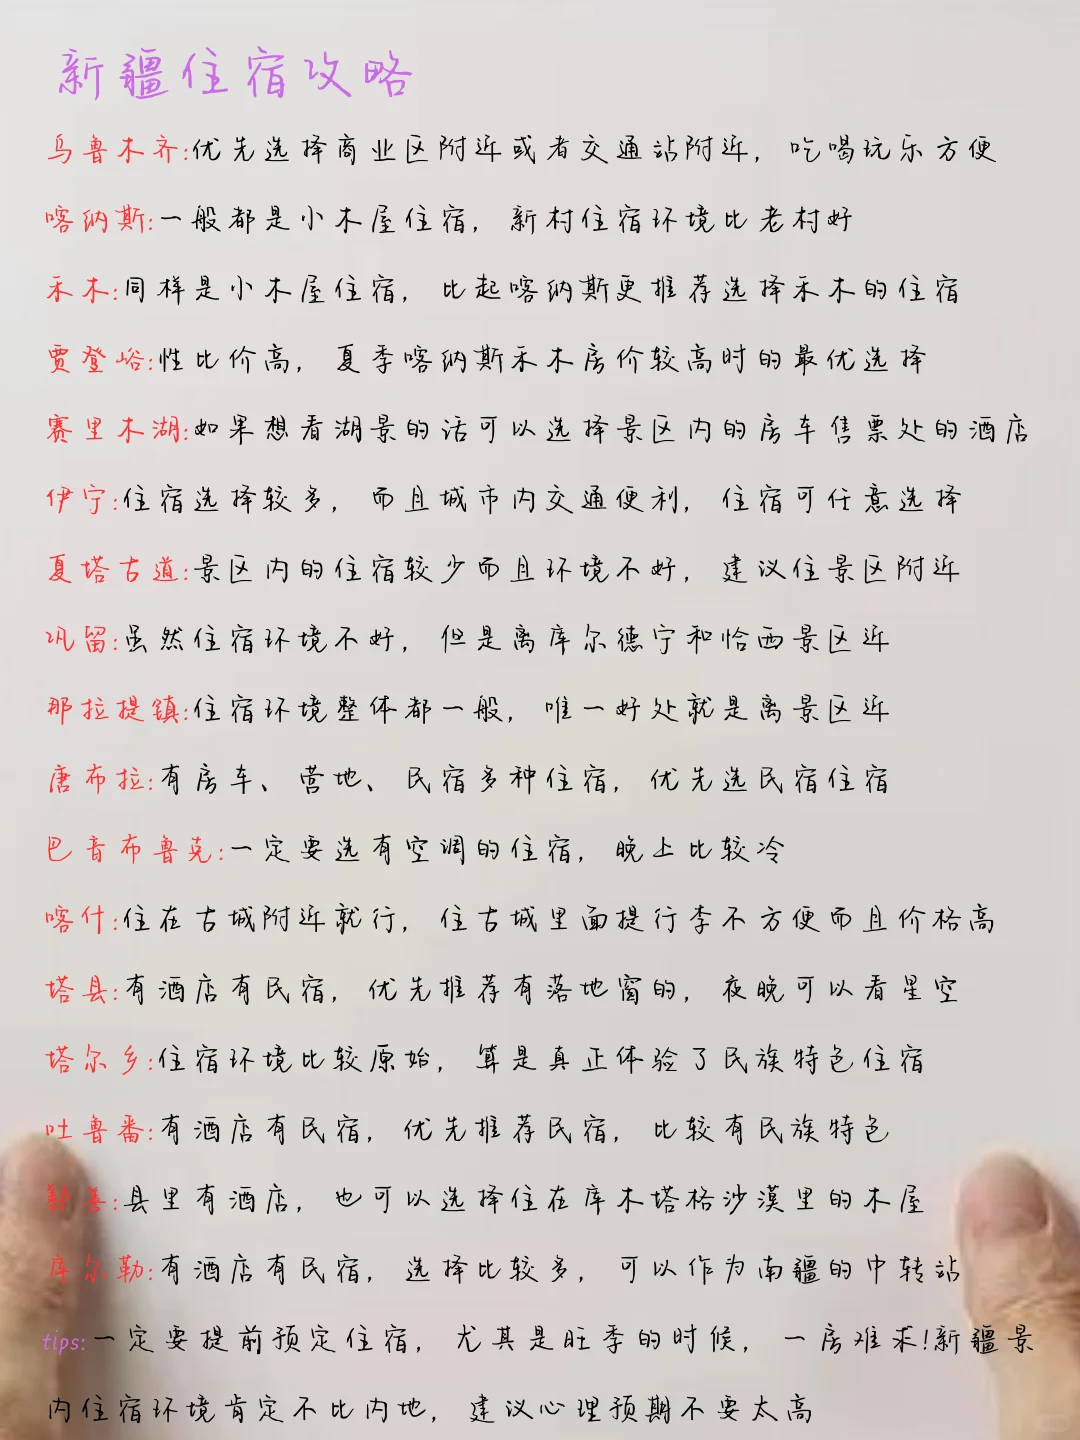 新疆住宿攻略
乌鲁木齐:优先选择商业区附近或者交通站附近，吃喝玩乐方便
喀纳斯:一般都是小木屋住宿，新村住宿环境比老村好
禾木:同样是小木屋住宿，比起喀纳斯更推荐选择禾木的住宿
贾登峪:性比价高，夏季喀纳斯禾木房价较高时的最优选择
赛里木湖:如果想看湖景的话可以选择景区内的房车售票处的酒店
伊宁:住宿选择较多，而且城市内交通便利，住宿可任意选择
夏塔古道:景区内的住宿较少而且环境不好，建议住景区附近
巩留:虽然住宿环境不好，但是离库尔德宁和恰西景区近
那拉提镇:住宿环境整体都一般，唯一好处就是离景区近
唐布拉:有房车、营地、民宿多种住宿，优先选民宿住宿
巴音布鲁克:一定要选有空调的住宿，晚上比较冷
喀什:住在古城附近就行，住古城里面提行李不方便而且价格高
塔县:有酒店有民宿，优先推荐有落地窗的，夜晚可以看星空
塔尔乡:住宿环境比较原始，算是真正体验了民族特色住宿
吐鲁番:有酒店有民宿，优先推荐民宿，比较有民族特色
鄯善:县里有酒店，也可以选择住在库木塔格沙漠里的木屋
库尔勒:有酒店有民宿，选择比较多，可以作为南疆的中转站
tips:一定要提前预定住宿，尤其是旺季的时候，一房难求!新疆景
内住宿环境肯定不比内地，建议心理预期不要太高